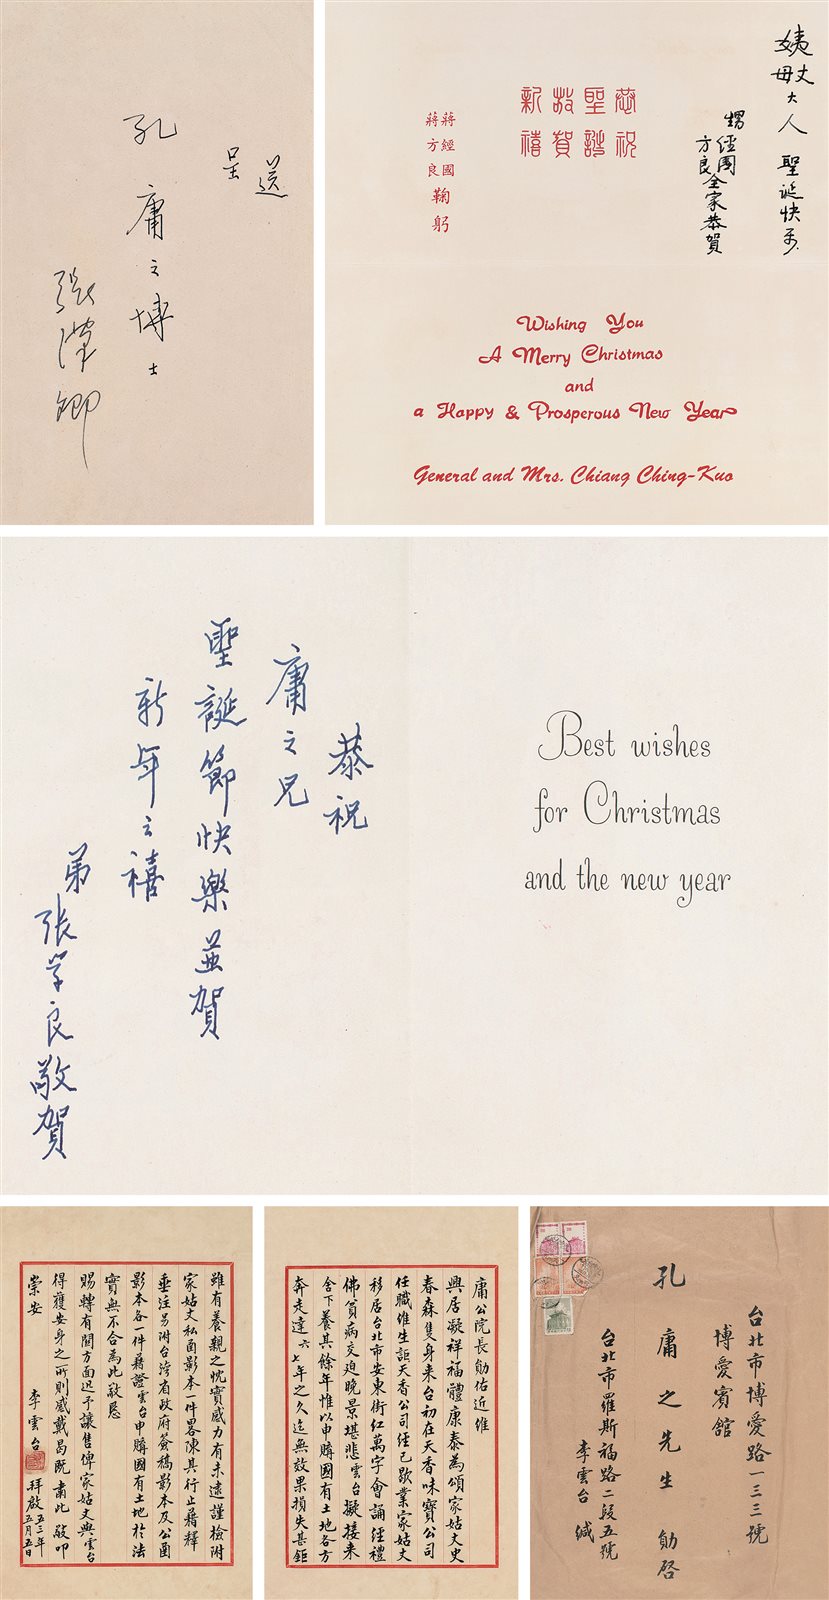 送
呈
孔庸之博士
張漢卿
姨丈
母
大人 聖誕快乐
甥 經國
方良全家恭賀
恭祝
聖誕
敬賀
新禧
蔣經國
蔣方良
鞠躬
Wishing You
A Merry Christmas
and
a Happy & Prosperous New Year
General and Mrs. Chiang Ching-Kuo
恭祝
庸之兄
聖誕節快樂並賀
新年之禧
弟張学良敬賀
Best wishes
for Christmas
and the new year
庸公院長勛右近維
興居凝祥福體康泰為頌家姑丈史
春森隻身来台初在天香味寶公司
任職維生詎天香公司經已歇業家姑丈
移居台北市安東街紅萬字會誦經禮
佛貧病交迫晚景堪悲雲台擬接来
舍下養其餘年惟以申購國有土地各方
奔走達六七年之久迄無效果損失甚鉅
雖有養親之忱實感力有未逮謹檢附
家姑丈私函影本一件畧陳其行止藉釋
垂注另附台灣省政府簽稿影本及公函
影本各一件藉證雲台申購國有土地於法
實無不合為此敬恳
賜轉有関方面迅予讓售俾家姑丈與雲台
得獲安身之所則感戴曷既肅此敬叩
崇安
李雲台 拜啟
五三年
五月五日
台北市博愛路一三三號
博愛賓館
孔庸之先生 勛啓
台北市羅斯福路二段五號
李雲台 緘